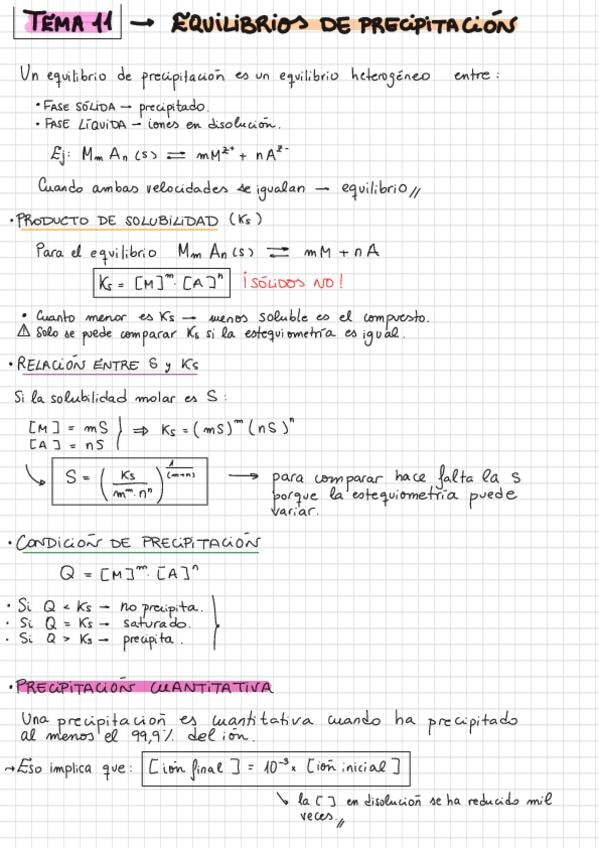 TEMA 11 → EQUILIBRIOS DE PRECIPITACIÓN
Un equilibrio de precipitación es un equilibrio heterogéneo entre:
• FASE SÓLIDA → precipitado.
• FASE LÍQUIDA → iones en disolución.
Ej: Mm An (s) ⇌ mM^z+ + nA^z-
Cuando ambas velocidades se igualan → equilibrio//
• PRODUCTO DE SOLUBILIDAD (Ks)
Para el equilibrio Mm An (s) ⇌ mM + nA
Ks = [M]^m · [A]^n ¡SÓLIDOS NO!
• Cuanto menor es Ks → menos soluble es el compuesto.
⚠ Solo se puede comparar Ks si la estequiometría es igual.
• RELACIÓN ENTRE S y Ks
Si la solubilidad molar es S:
[M] = mS
[A] = nS } ⇒ Ks = (mS)^m (nS)^n
S = (Ks / m^m · n^n)^1/(m+n) → para comparar hace falta la S
porque la estequiometría puede
variar.
• CONDICIÓN DE PRECIPITACIÓN
Q = [M]^m · [A]^n
• Si Q < Ks → no precipita.
• Si Q = Ks → saturado.
• Si Q > Ks → precipita.
• PRECIPITACIÓN CUANTITATIVA
Una precipitación es cuantitativa cuando ha precipitado
al menos el 99,9% del ión.
→ Eso implica que: [ión final] = 10^-3 × [ión inicial]
↘ la [ ] en disolución se ha reducido mil
veces.//